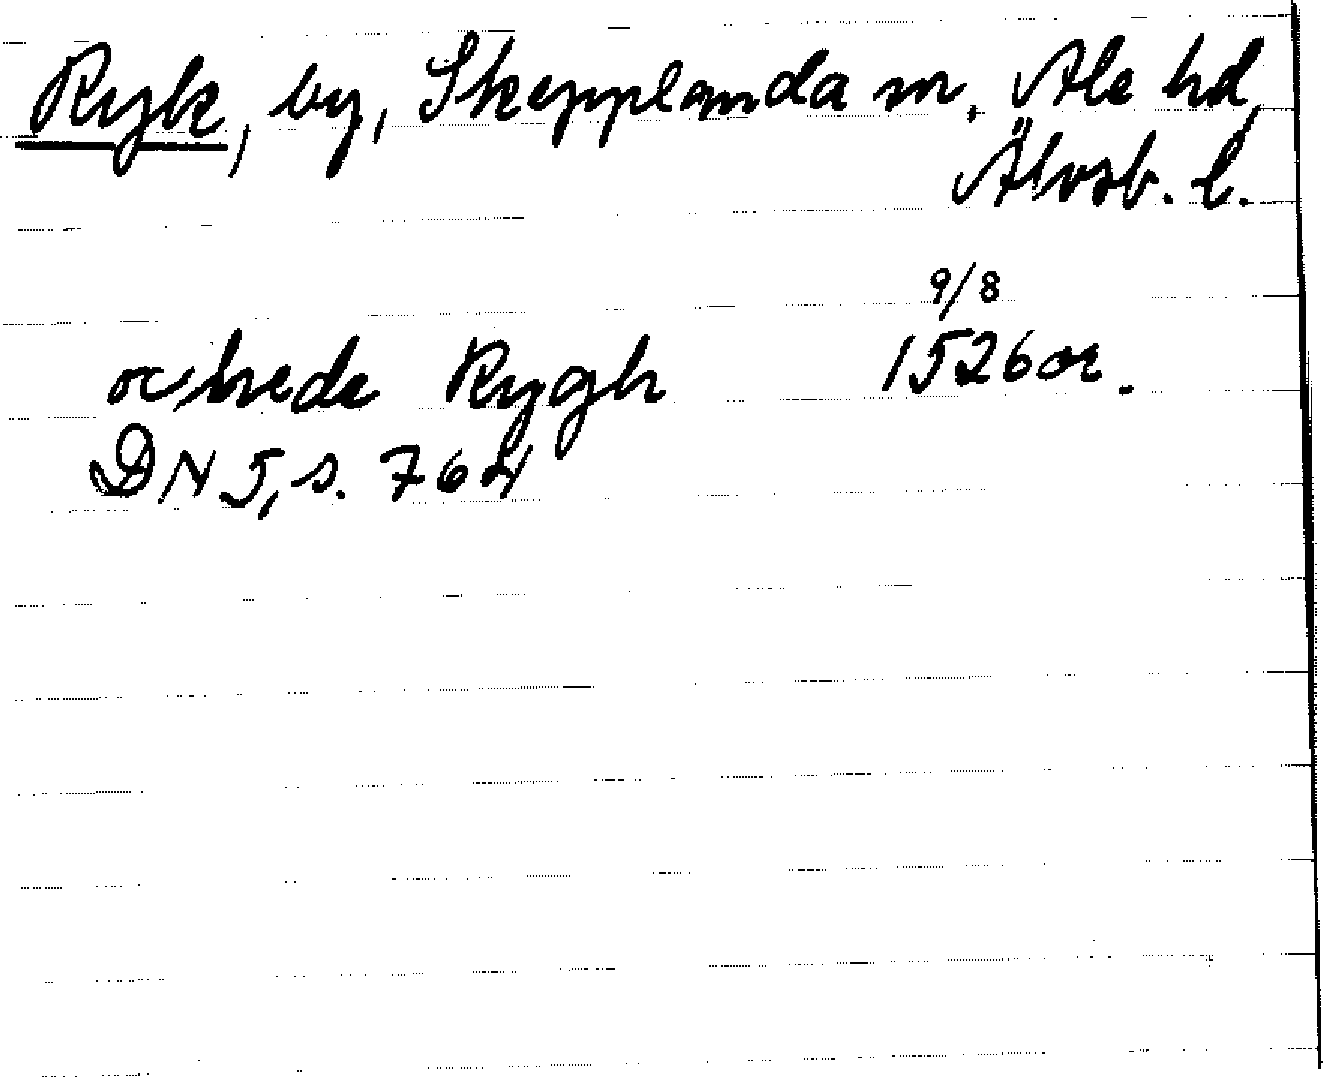 Ryk, by, Skepplanda sn. Ale hd,
Älvsb. l.
9/8
oc hreda Rygh 1526 or.
DN 5, s. 764